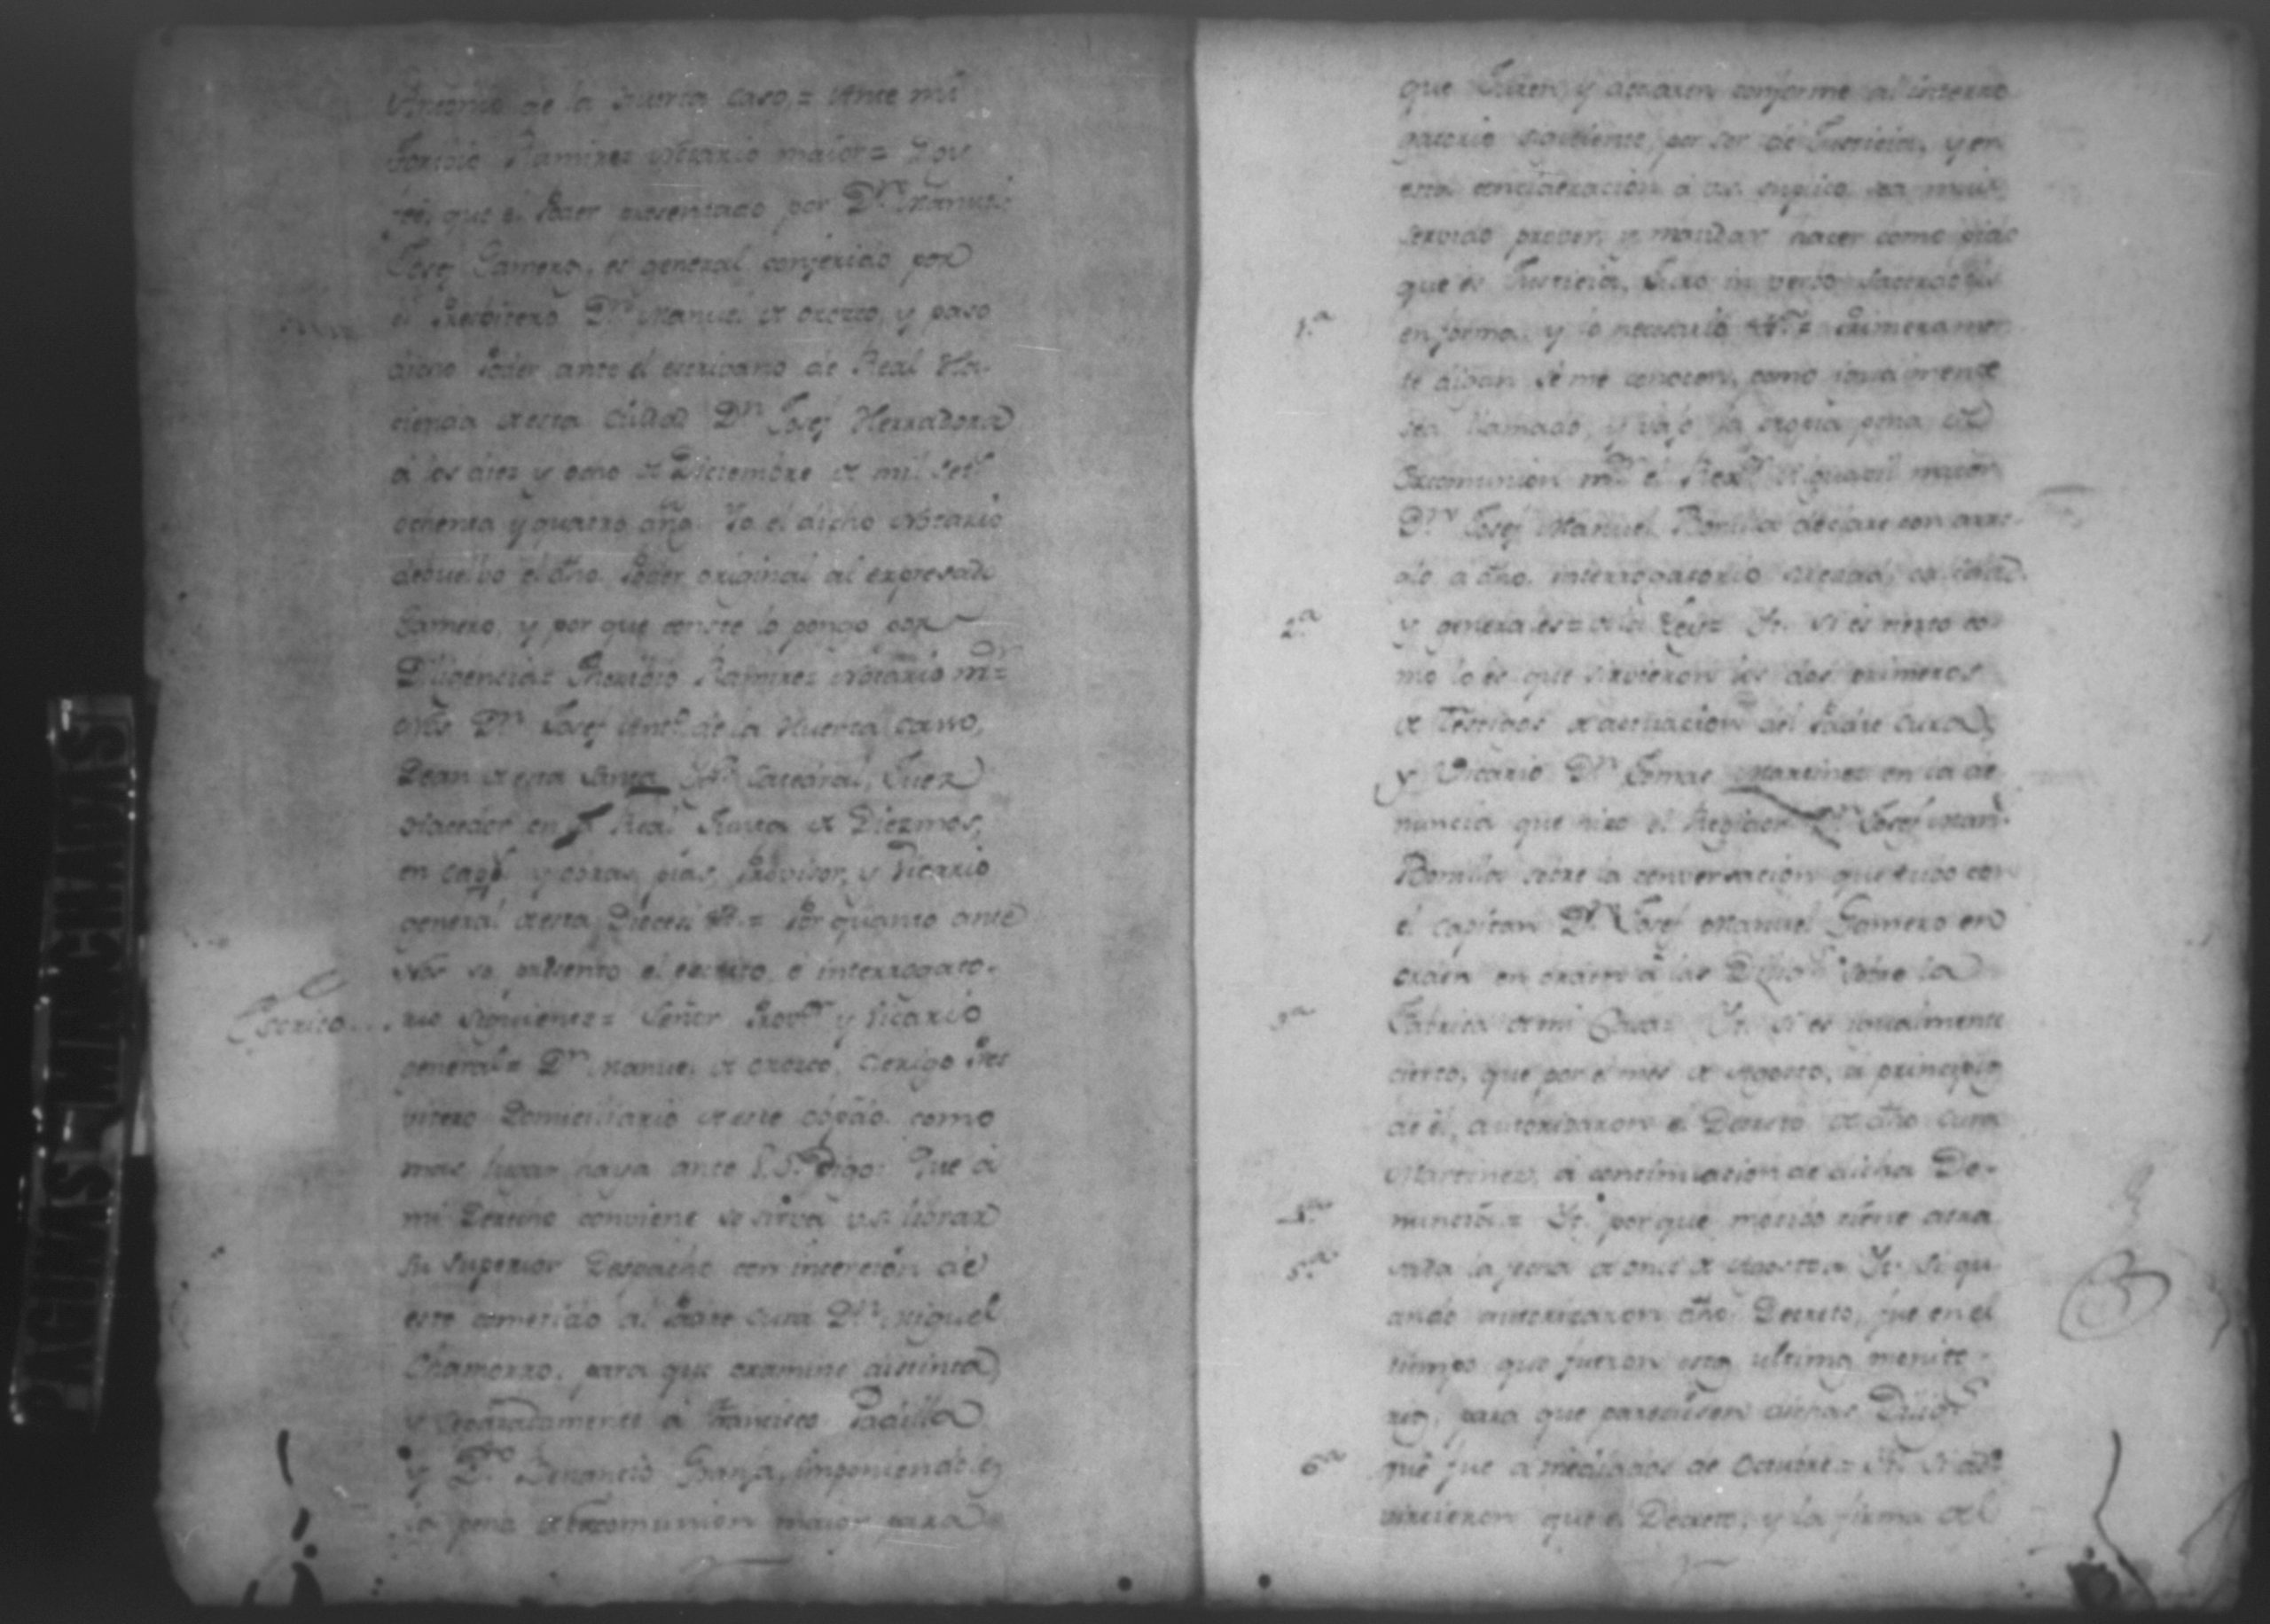 Antonio de la Huerta Caso, = Ante mi
Toribio Ramirez Notario maior = Doy
fee, que el Poder presentado por Dn. Manuel
Josef Gamero, es general conferido por
el Presbitero Dn. Manuel de Orozco, y paso
dicho Poder ante el escribano de Real Ha-
cienda de esta Ciudad Dn. Josef Herradora
á los diez y ocho de Diciembre de mil set.
ochenta y quatro año. Yo el dicho Notario
debuelbo el dho. Poder original al expresado
Gamero, y por que conste lo pongo por
Diligencia = Thoribio Ramirez Notario mr. =
Nos Dn. Josef Anto. de la Huerta Casso,
Dean de esta Santa Igla. Catedral, Juez
Hacedor en la Real Junta de Diezmos,
en y obras pias, Provisor, y Vicario
general de esta Diocesi &a. = Por quanto ante
Nos se presento el escrito, é interrogato-
Escrito... rio siguiente = Señor Provor. y Vicario
general = Dn. Manuel de Orozco, Clerigo Pres
vitero Domiciliario de este obpdo. como
mas lugar haya ante V.S. Digo: Que á
mi Derecho conviene se sirva v.s. librar
su superior Despacho con incercion de
este cometido al Padre Cura Dn. Miguel
Chamorro, para que examine distinta,
y separadamente á Francisco Padilla
y Dn. Benancio Granja, imponiendoles
la pena de Excomunion maior para
que Juren, y declaren conforme al interro
gatorio siguiente, por ser de Justicia, y en
esta concideracion á v.s. suplico sea mui
servido proveer, y mandar hacer como pido
que es Justicia, Juro in verbo sacerdotis
1.a en forma, y lo necesario &a. = Primeramen
te digan si me conocen, como igualmente
sea llamado, y vajo la propia pena de
Excomunion mr. el Regor. Alguacil maior
Dn. Josef Manuel Bonilla declare con arre-
glo a dho. interrogatorio
2.a y generales = de la Ley = Yt. si es cierto co-
mo lo es que sirvieron los dos primeros
de Testigos de actuacion del Padre Cura,
y Vicario Dn. Tomas Martinez en la de
nuncia que hizo el Regidor Dn. Josef Man.
Bonilla sobre la conversacion que tubo con
el Capitan Dn. Josef Manuel Gamero en
orden en orden á las Diligs. sobre la
3.a Fabrica de mi Casa = Yt. si es igualmente
cierto, que por el mes de Agosto, á principio
de él, autorizaron el Decreto de dho Cura
Martinez, á continuacion de dicha De-
4.a nuncia = Yt. por que motibo tiene atra
5.a sada la fecha de once de Agosto = Yt. si qu
ando autorizaron dho. Decreto, fue en el
tiempo que fueron esta ultima
ria, para que pareciesen dichas Diligs.
6.a que fue a mediados de Octubre = Yt. si ad-
virtieron que el Decreto, y la firma del